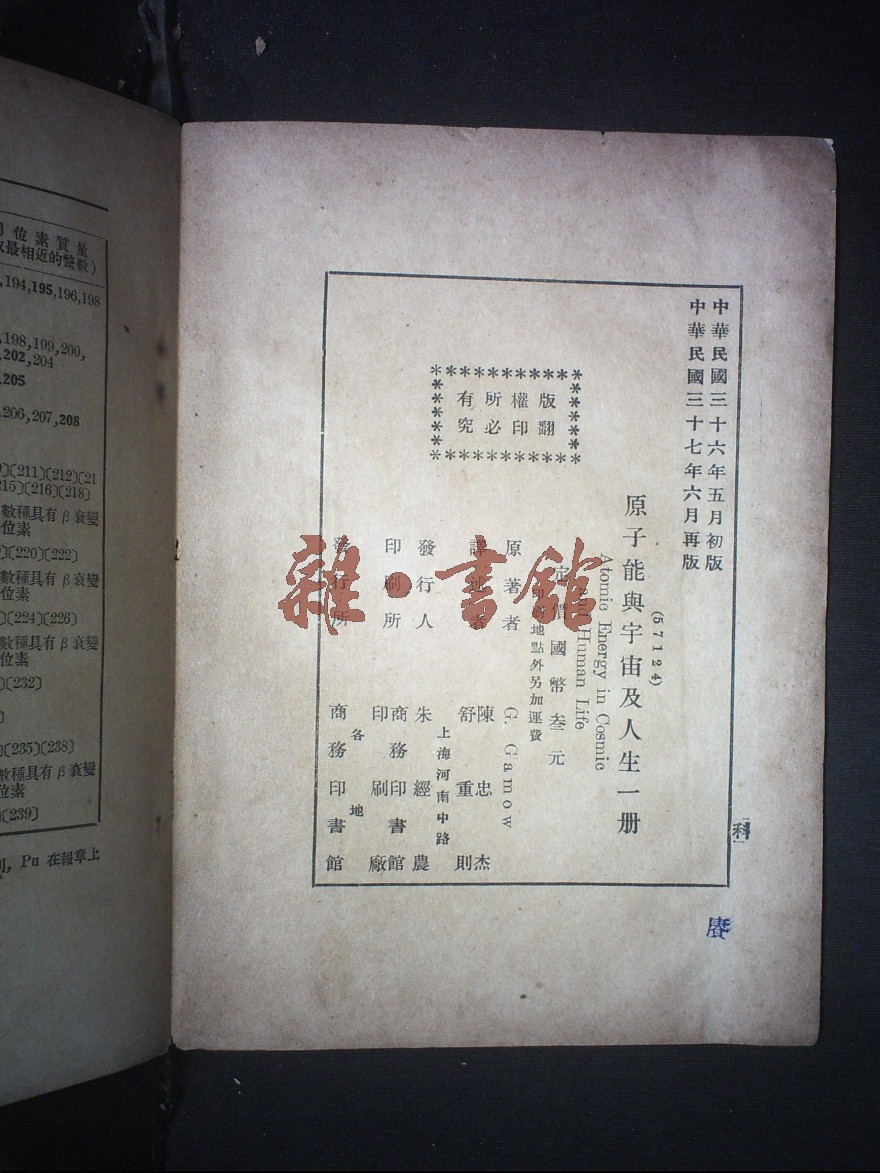 位素質量
取最相近的整數）
,194,195,196,198
,198,199,200,
,202,204
,205
,206,207,208
)〔211〕〔212〕〔21
215〕〔216〕〔218〕
數種具有 β 衰變
位素
〕〔220〕〔222〕
數種具有 β 衰變
位素
〕〔224〕〔226〕
數種具有 β 衰變
位素
〕〔232〕
〕〔235〕〔238〕
數種具有 β 衰變
位素
〕〔239〕
, Pu 在報章上
中華民國三十六年五月初版
中華民國三十七年六月再版
版權所有
翻印必究
(57124)
原子能與宇宙及人生一册
Atomic Energy in Cosmic
and Human Life
定價國幣叁元
印刷地點外另加運費
原著者 G. Gamow
譯述者 陳忠杰
舒重則
發行人 朱經農
上海河南中路
印刷所 商務印書館
印刷廠
發行所 各地
商務印書館
科
雜·書館